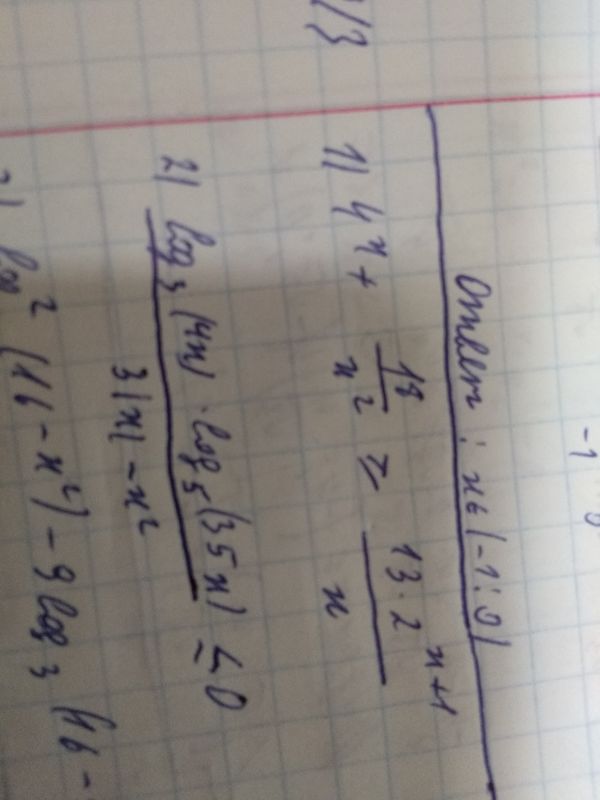 -1 0
Ответ: x ∈ (-1; 0)
1) 4^x + 18/x^2 ≥ 13·2^{x+1}/x
2) log_3(4x) · log_5(35x) / 3|x| - x^2 ≤ 0
log^2 (16 - x^2) - 9 log_3 (16 -